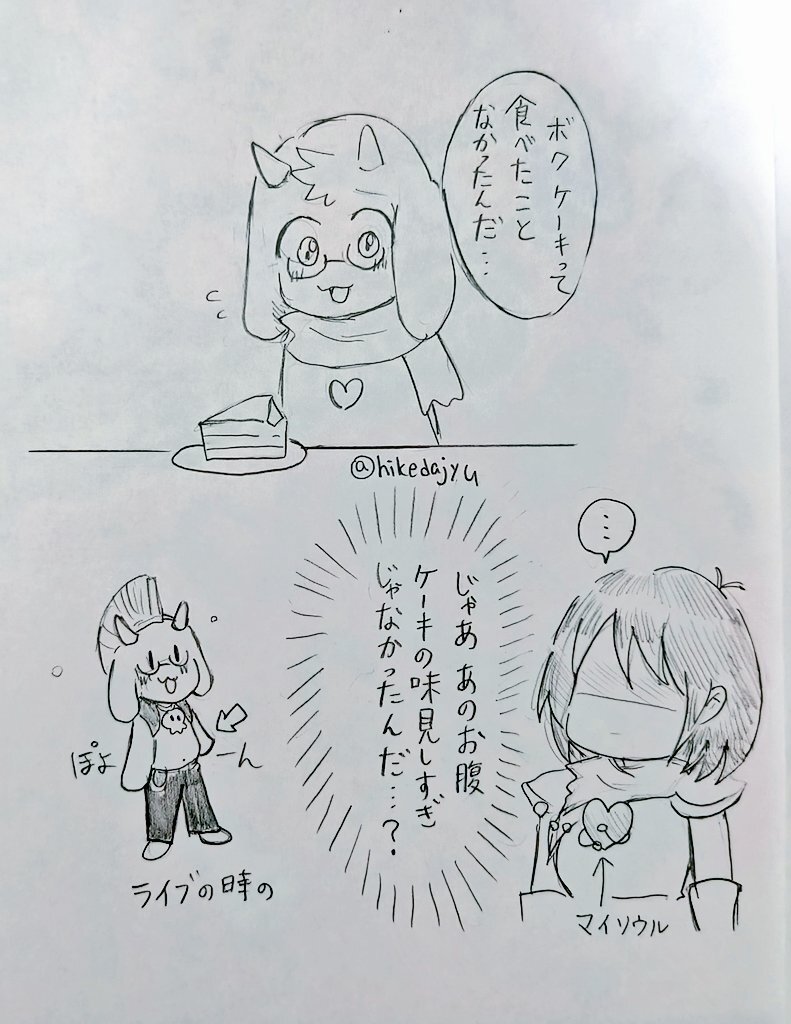 ボクケーキって
食べたこと
なかったんだ…
@hikedajyu
…
じゃああのお腹
ケーキの味見しすぎ
じゃなかったんだ…？
ぽよ
ーん
ライブの時の
マイソウル